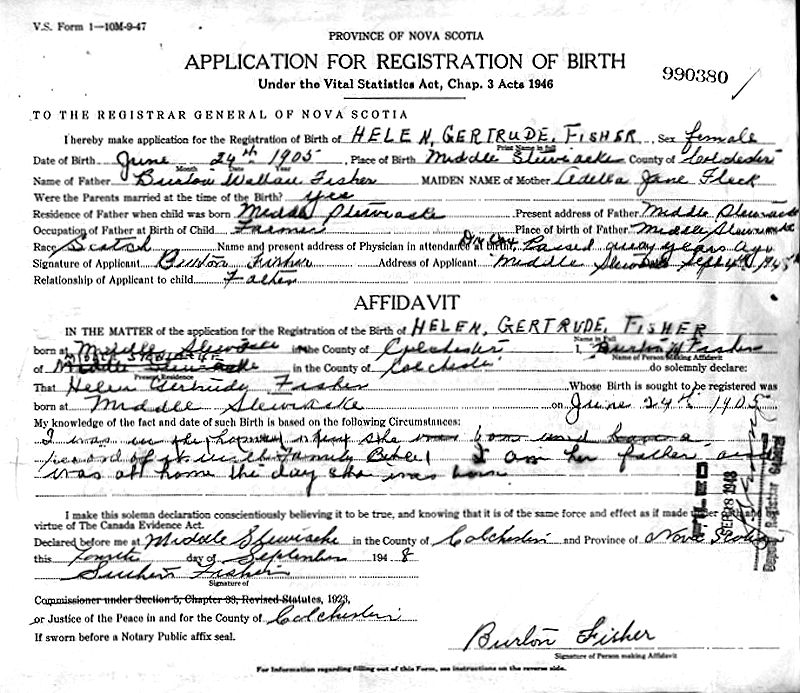 V.S. Form 1—10M-9-47
PROVINCE OF NOVA SCOTIA
APPLICATION FOR REGISTRATION OF BIRTH
990380
Under the Vital Statistics Act, Chap. 3 Acts 1946
TO THE REGISTRAR GENERAL OF NOVA SCOTIA
I hereby make application for the Registration of Birth of HELEN, GERTRUDE, FISHER, Sex female
Print Name in full
Date of Birth June 24th 1905, Place of Birth Middle Stewiacke County of Colchester
Month Date Year
Name of Father Burton Wallace Fisher MAIDEN NAME of Mother Adella Jane Fleck
Were the Parents married at the time of the Birth? yes
Residence of Father when child was born Middle Stewiacke Present address of Father Middle Stewiacke
Occupation of Father at Birth of Child Farmer Place of birth of Father Middle Stewiacke
Race Scotch Name and present address of Physician in attendance at birth Dr Cox Passed away years ago
Signature of Applicant Burton Fisher Address of Applicant Middle Stewiacke Sept 4th
Relationship of Applicant to child Father
AFFIDAVIT
IN THE MATTER of the application for the Registration of the Birth of HELEN, GERTRUDE, FISHER
Name in Full
born at Middle Stewiacke in the County of Colchester I, Burton W Fisher
Name of Person Making Affidavit
MIDDLE STEWIACKE
of Middle Stewiacke in the County of Colchester do solemnly declare:
Present Residence
That Helen Gertrude Fisher Whose Birth is sought to be registered was
born at Middle Stewiacke on June 24th 1905
My knowledge of the fact and date of such Birth is based on the following Circumstances:
I was in the home when she was born and have a
record of it in the Family Bible I am her father and
was at home the day she was born
I make this solemn declaration conscientiously believing it to be true, and knowing that it is of the same force and effect as if made under oath and
virtue of The Canada Evidence Act.
Declared before me at Middle Stewiacke in the County of Colchester and Province of Nova Scotia
this Fourth day of September 1948
Fisher
Signature of
Commissioner under Section 5, Chapter 33, Revised Statutes, 1923,
or Justice of the Peace in and for the County of Colchester
If sworn before a Notary Public affix seal.
Burton Fisher
Signature of Person making Affidavit
For Information regarding filling out of this Form, see instructions on the reverse side.
FILED
SEP 28 1948
Deputy Registrar General